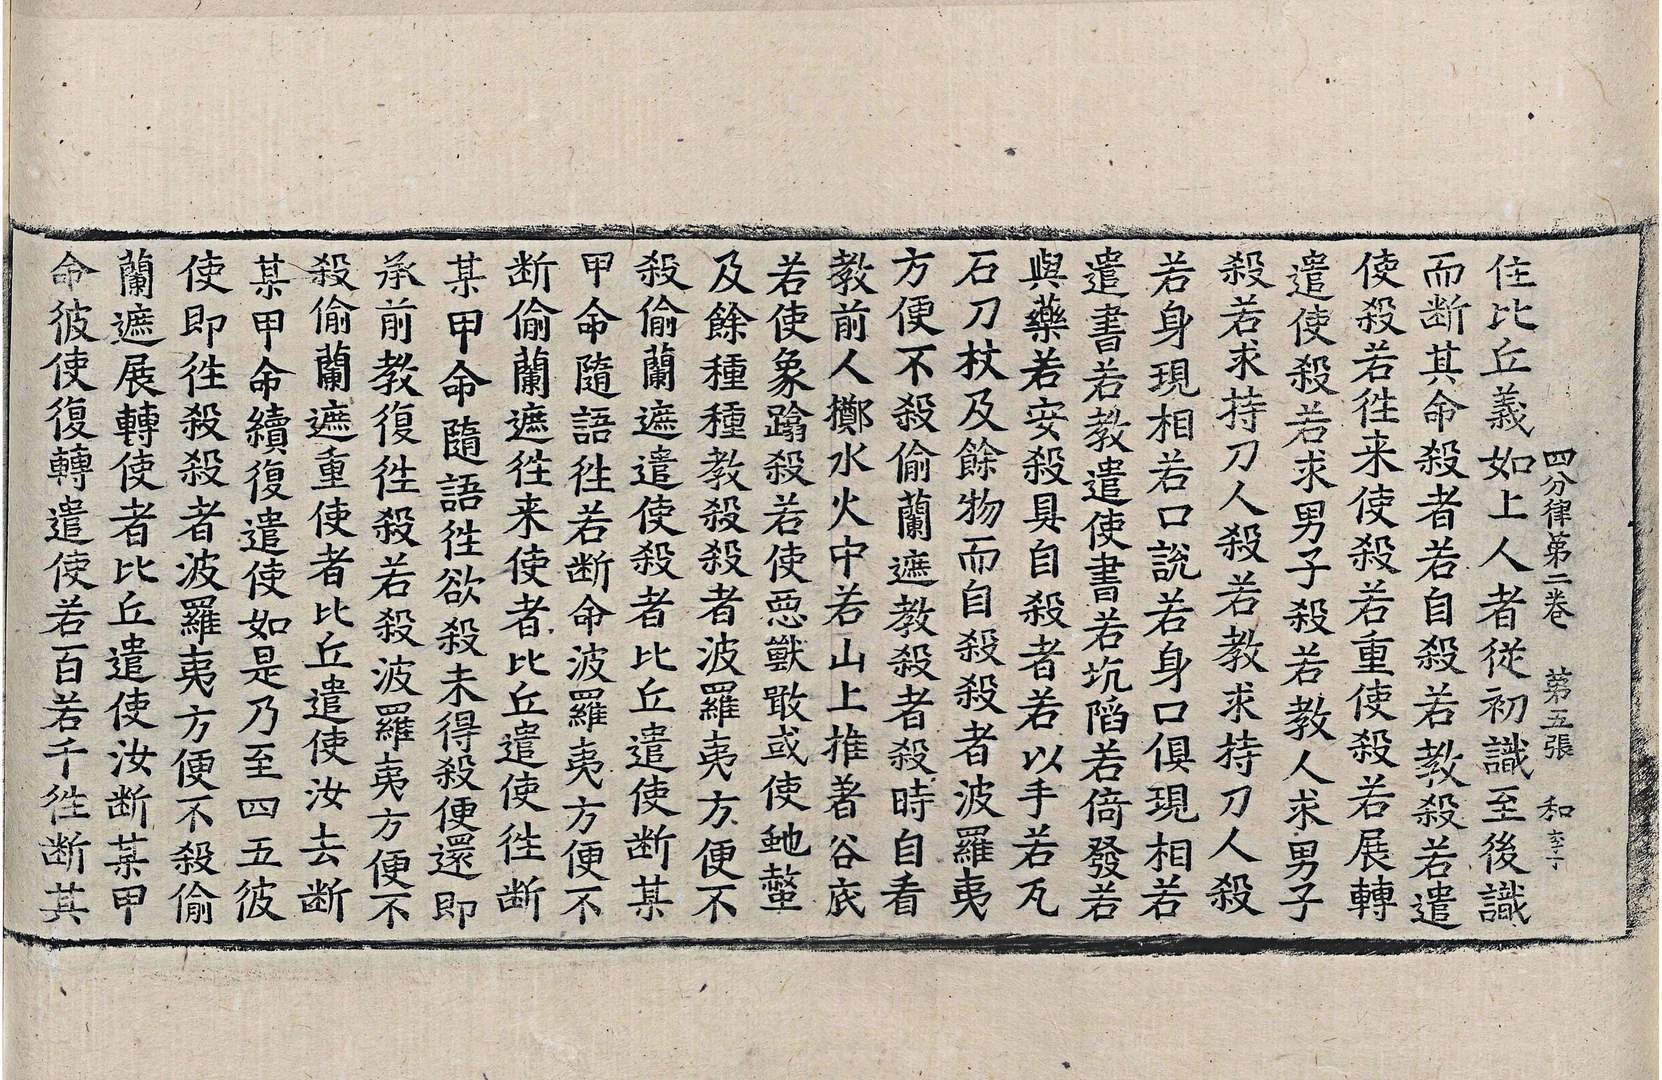 四分律第二卷　第五張　和　李子
住比丘義如上人者從初識至後識
而断其命殺者若自殺若教殺若遣
使殺若徃来使殺若重使殺若展轉
遣使殺若求男子殺若教人求男子
殺若求持刀人殺若教求持刀人殺
若身現相若口說若身口俱現相若
遣書若教遣使書若坑陷若倚發若
與藥若安殺具自殺者若以手若瓦
石刀杖及餘物而自殺殺者波羅夷
方便不殺偷蘭遮教殺者殺時自看
教前人擲水火中若山上推著谷底
若使象蹹殺若使惡獸噉或使虵螫
及餘種種教殺殺者波羅夷方便不
殺偷蘭遮遣使殺者比丘遣使断某
甲命隨語徃若断命波羅夷方便不
断偷蘭遮徃来使者比丘遣使徃断
某甲命隨語徃欲殺未得殺便還即
承前教復徃殺若殺波羅夷方便不
殺偷蘭遮重使者比丘遣使汝去断
某甲命續復遣使如是乃至四五彼
使即徃殺殺者波羅夷方便不殺偷
蘭遮展轉使者比丘遣使汝断某甲
命彼使復轉遣使若百若千徃断其